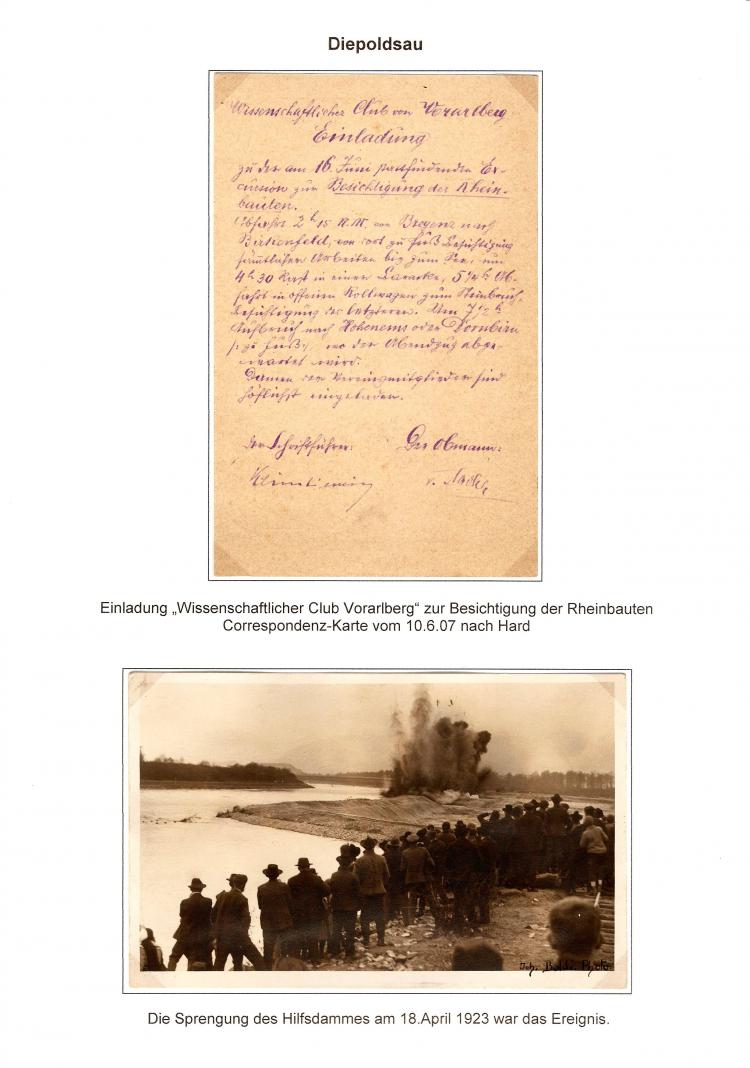 Diepoldsau
Wissenschaftlicher Club von Vorarlberg
Einladung
zu der am 16. Juni stattfindenden Ex-
cursion zur Besichtigung der Rhein-
bauten.
Abfahrt 2 h 15 N.M. von Bregenz nach
Birkenfeld, von dort zu Fuß Besichtigung
sämtlicher Arbeiten bis zum See, um
4 h 30 Rast in einer Baracke, 5 1/2 h Ab-
fahrt in offenen Rollwagen zum Steinbruch,
Besichtigung des letzteren. Um 7 1/2 h
Aufbruch nach Hohenems oder Dornbirn
/: zu Fuß :/, wo der Abendzug abge-
wartet wird.
Damen der Vereinsmitglieder sind
höflichst eingeladen.
Der Schriftführer: Der Obmann:
v.
Einladung „Wissenschaftlicher Club Vorarlberg“ zur Besichtigung der Rheinbauten
Correspondenz-Karte vom 10.6.07 nach Hard
Joh. Photo
Die Sprengung des Hilfsdammes am 18.April 1923 war das Ereignis.